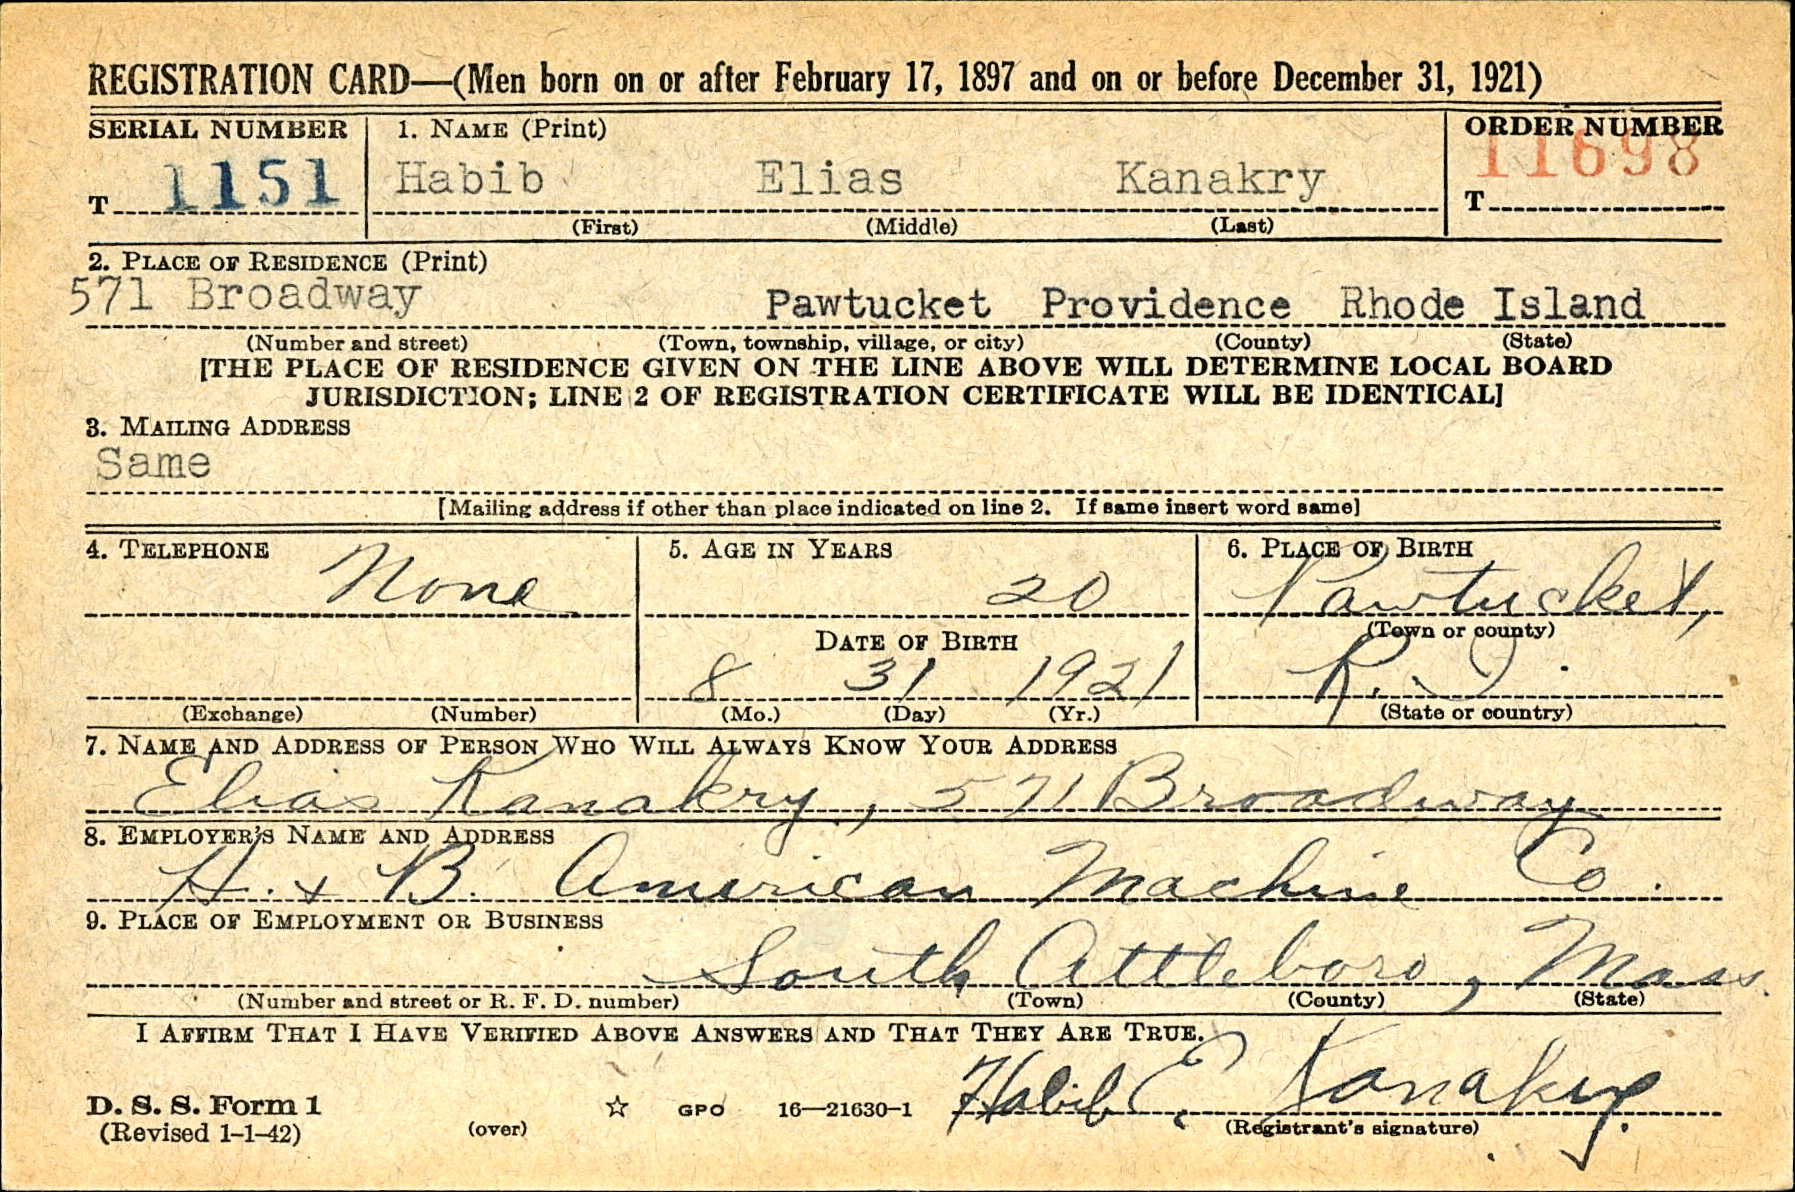 REGISTRATION CARD—(Men born on or after February 17, 1897 and on or before December 31, 1921)
SERIAL NUMBER 1. NAME (Print) ORDER NUMBER
T 1151 Habib Elias Kanakry T 11698
(First) (Middle) (Last)
2. PLACE OF RESIDENCE (Print)
571 Broadway Pawtucket Providence Rhode Island
(Number and street) (Town, township, village, or city) (County) (State)
[THE PLACE OF RESIDENCE GIVEN ON THE LINE ABOVE WILL DETERMINE LOCAL BOARD
JURISDICTION; LINE 2 OF REGISTRATION CERTIFICATE WILL BE IDENTICAL]
3. MAILING ADDRESS
Same
[Mailing address if other than place indicated on line 2. If same insert word same]
4. TELEPHONE 5. AGE IN YEARS 6. PLACE OF BIRTH
None 20 Pawtucket,
DATE OF BIRTH (Town or county)
8 31 1921 R. I.
(Exchange) (Number) (Mo.) (Day) (Yr.) (State or country)
7. NAME AND ADDRESS OF PERSON WHO WILL ALWAYS KNOW YOUR ADDRESS
Elias Kanakry, 571 Broadway
8. EMPLOYER'S NAME AND ADDRESS
H. & B. American Machine Co.
9. PLACE OF EMPLOYMENT OR BUSINESS
South Attleboro, Mass.
(Number and street or R. F. D. number) (Town) (County) (State)
I AFFIRM THAT I HAVE VERIFIED ABOVE ANSWERS AND THAT THEY ARE TRUE.
Habib E. Kanakry.
D. S. S. Form 1 ☆ GPO 16—21630-1
(Revised 1-1-42) (over) (Registrant's signature)